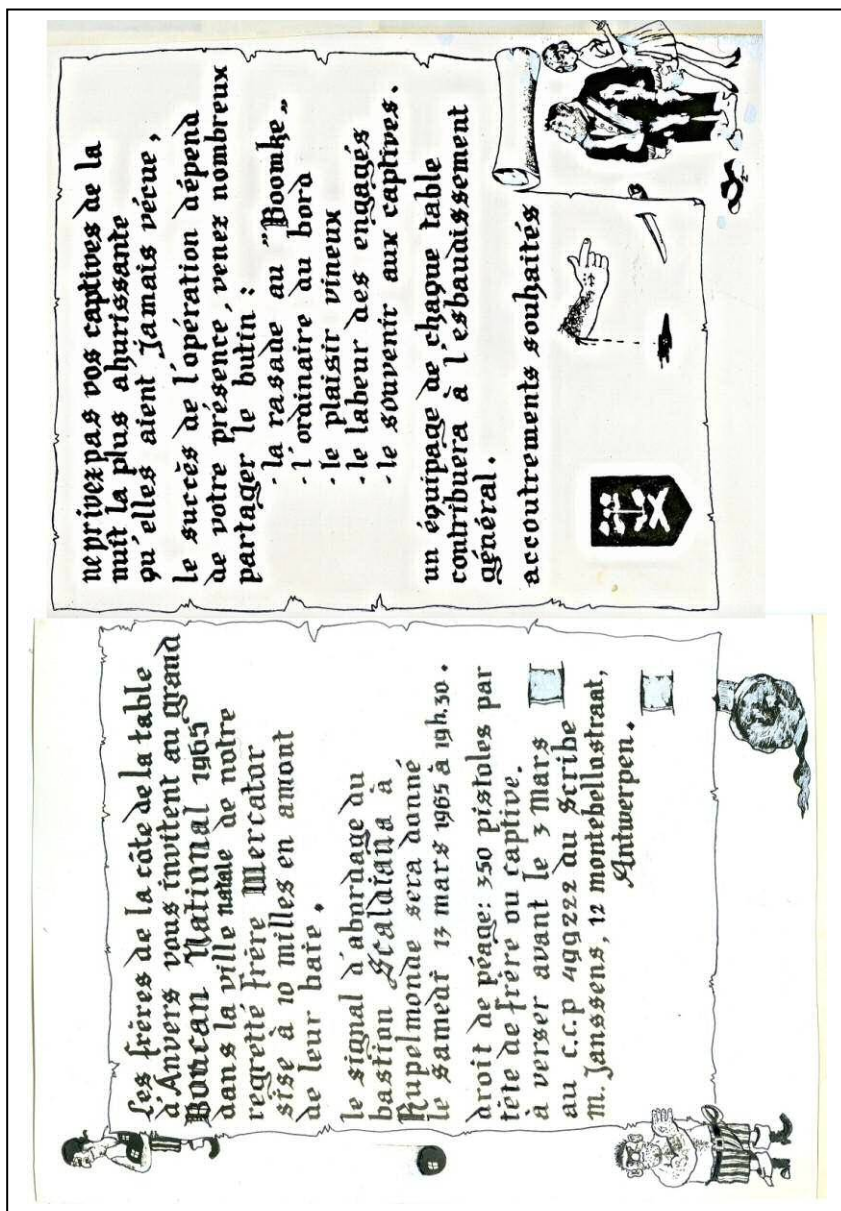 Les frères de la côte de la table
d'Anvers vous invitent au grand
Boucan National 1965
dans la ville natale de notre
regretté frère Mercator
sise à 10 milles en amont
de leur baie.
le signal d'abordage du
bastion Scaldiana à
Rupelmonde sera donné
le samedi 13 mars 1965 à 19h.30.
droit de péage: 350 pistoles par
tète de frère ou captive.
à verser avant le 3 Mars
au c.c.p 499222 du Scribe
m. Janssens, 12 montebellostraat,
Antwerpen.
ne privez pas vos captives de la
nuit la plus ahurissante
qu'elles aient jamais vécue,
le succès de l'opération dépend
de votre présence, venez nombreux
partager le butin :
- la rasade au "Boomke"
- l'ordinaire du bord
- le plaisir vineux
- le labeur des engagés
- le souvenir aux captives.
un équipage de chaque table
contribuera à l'esbaudissement
général.
accoutrements souhaités